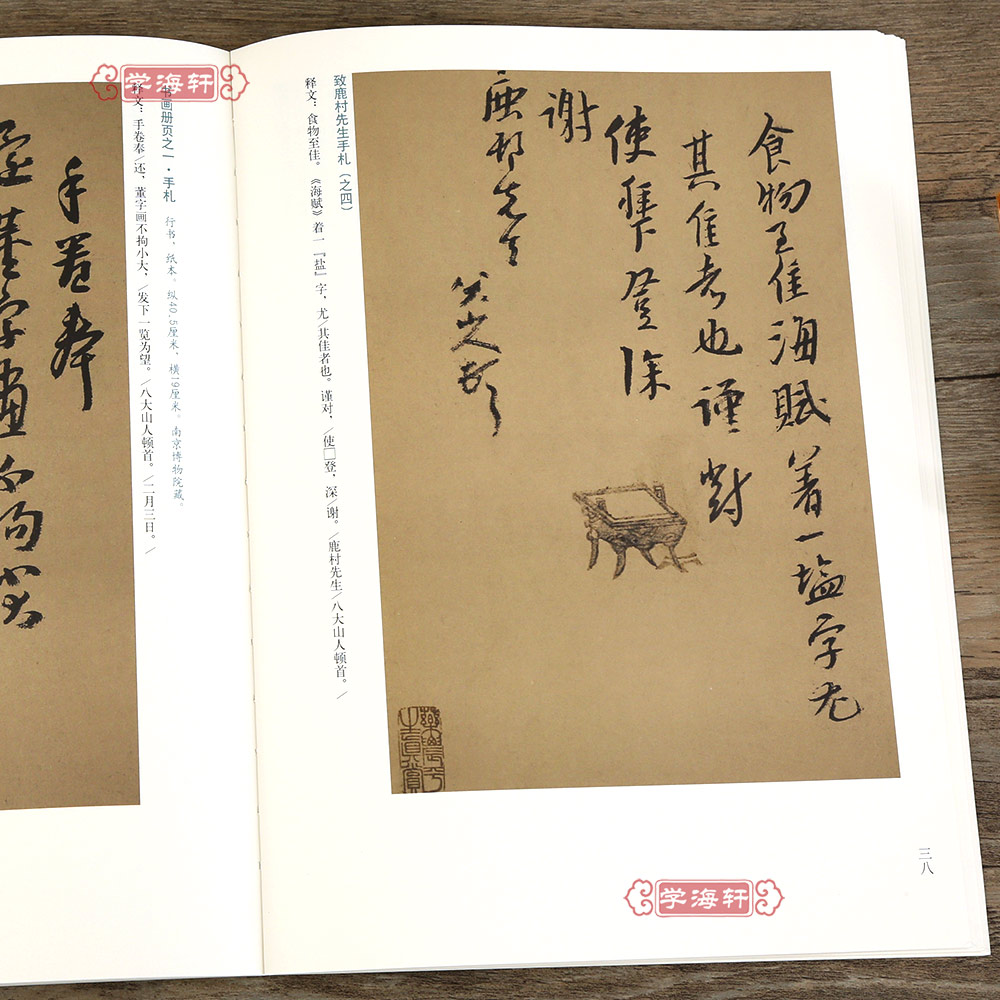 食物至佳海賦着一塩字尤
其佳者也謹對
使登深
謝
鹿邨先生
八大山人頓首
致鹿村先生手札（之四）
释文：食物至佳。《海赋》着一『盐』字，尤/其佳者也。谨对，/使□登，深/谢。/鹿村先生/八大山人顿首。/
三八
手卷奉
還董字畫不拘小大
书画册页之一·手札 行书，纸本。纵40.5厘米，横19厘米。南京博物院藏。
释文：手卷奉/还，董字画不拘小大，/发下一览为望。/八大山人顿首。/二月三日。/
学海轩
学海轩